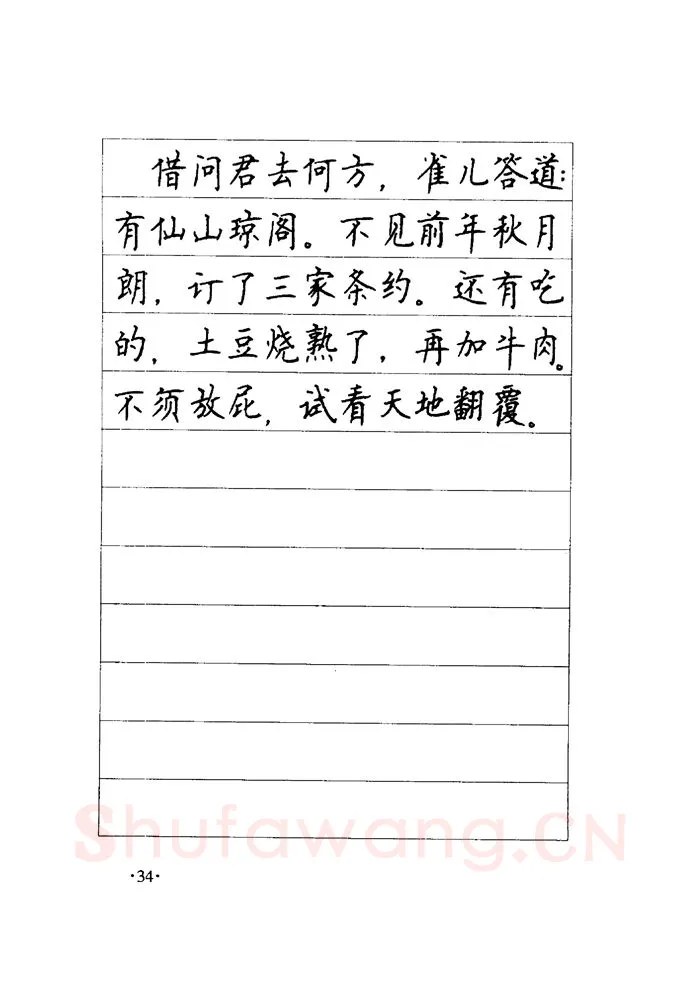 借问君去何方，雀儿答道：
有仙山琼阁。不见前年秋月
朗，订了三家条约。还有吃
的，土豆烧熟了，再加牛肉。
不须放屁，试看天地翻覆。
Shufawang.CN
·34·